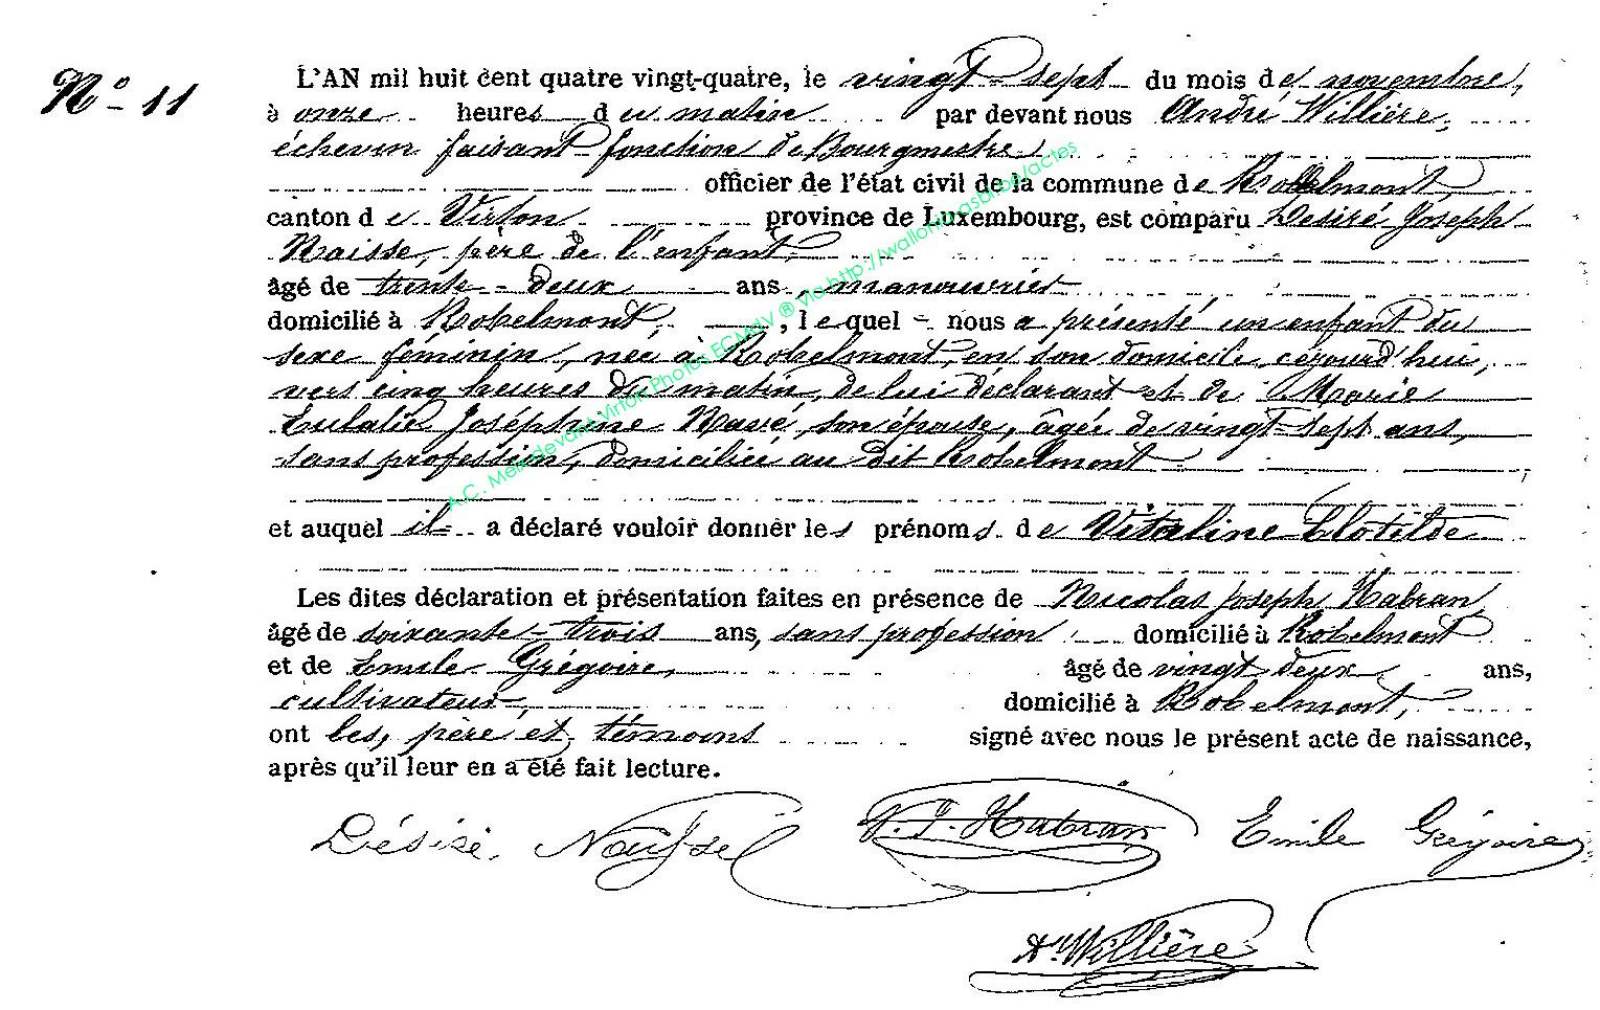 N° 11
L'AN mil huit cent quatre vingt-quatre, le vingt-sept du mois de novembre,
à onze heures du matin par devant nous André Willière,
échevin faisant fonction de Bourgmestre
officier de l'état civil de la commune de Robelmont,
canton de Virton province de Luxembourg, est comparu Désiré Joseph
Naisse, père de l'enfant,
âgé de trente-deux ans, manouvrier
domicilié à Robelmont, , lequel nous a présenté un enfant du
sexe féminin, née à Robelmont, en son domicile, cejourd'hui,
vers cinq heures du matin, de lui déclarant et de Marie
Eulalie Joséphine Navé, son épouse, âgée de vingt-sept ans,
sans profession, domiciliée au dit Robelmont
et auquel il a déclaré vouloir donner les prénoms de Vitaline Clotilde
Les dites déclaration et présentation faites en présence de Nicolas Joseph Habran,
âgé de soixante-trois ans, sans profession domicilié à Robelmont
et de Emile Grégoire, âgé de vingt deux ans,
cultivateur, domicilié à Robelmont,
ont les, père et témoins signé avec nous le présent acte de naissance,
après qu'il leur en a été fait lecture.
Désiré N. J. Habran Emile Grégoire
Willière
A.C. Meix-devant-Virton Photos ECMdV ® via http://wallonia-asbl.be/actes